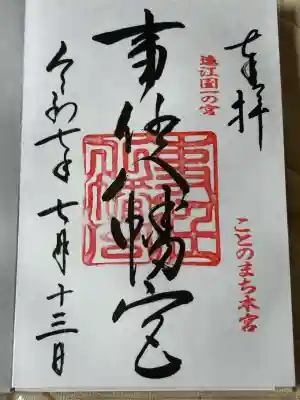 奉拝
遠江国一の宮
ことのまち本宮
事任八幡宮
令和七年七月十三日